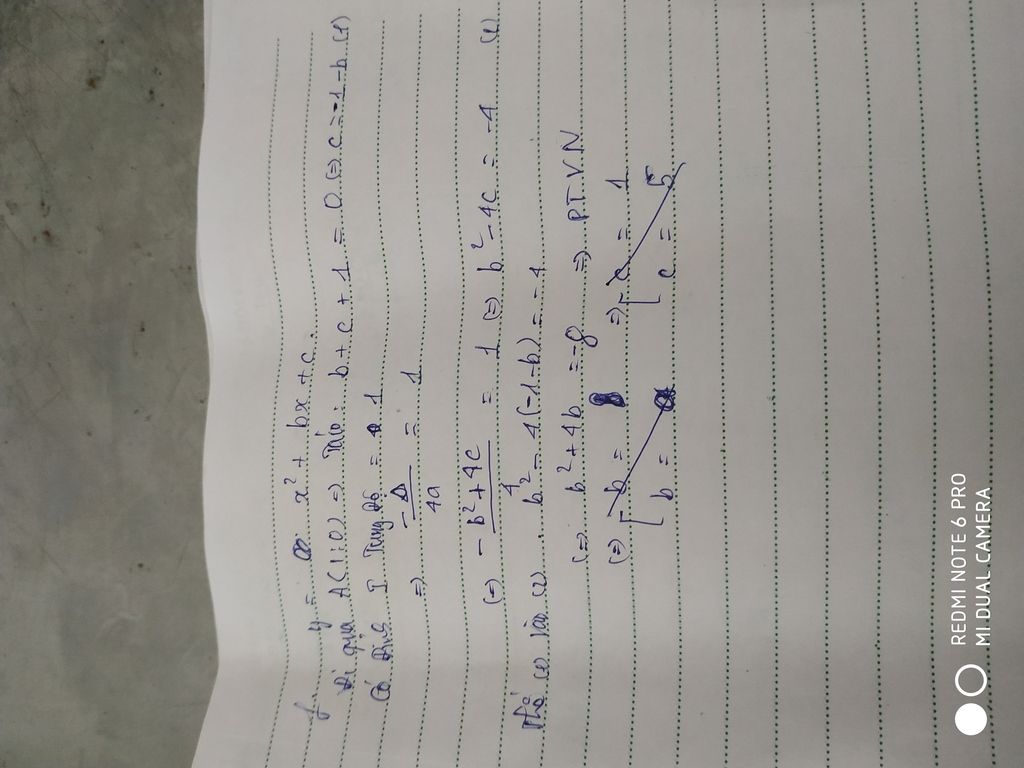 f. y = x² + bx + c.
Đi qua A(1;0) => b + c + 1 = 0 (=) c = -1 - b (1)
Có Đỉnh I Tung độ = 1
=> -Δ / 4a = 1
(=) -b² + 4c / 4 = 1 (=) b² - 4c = -4 (2)
Thế (1) vào (2) b² - 4(-1-b) = -4
(=) b² + 4b = -8 => P.T.V.N
(=) [ b = => [ c = 1
b = c = 5
REDMI NOTE 6 PRO
MI DUAL CAMERA